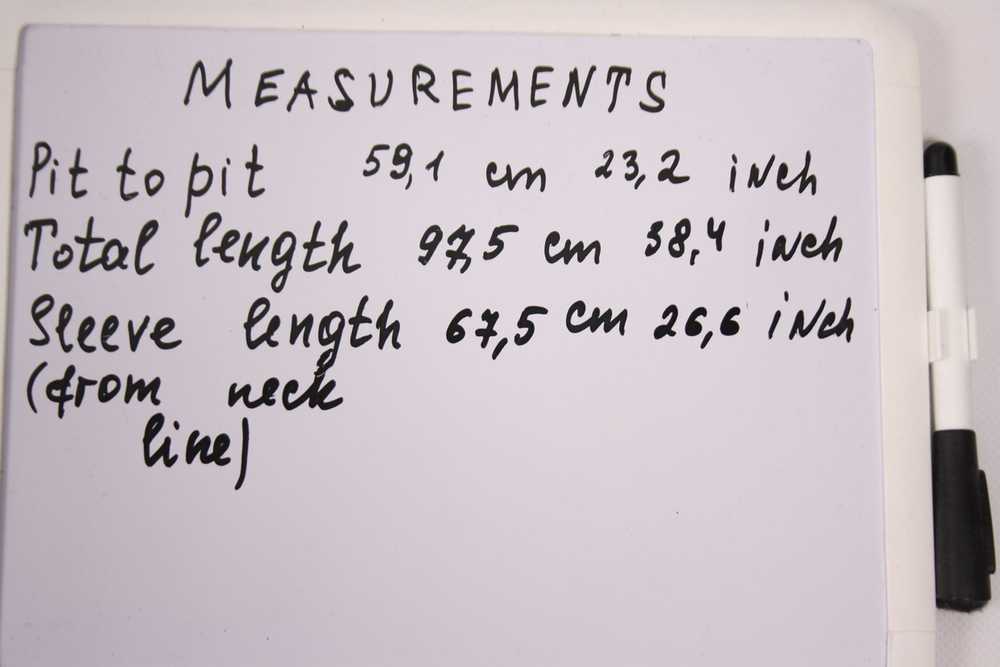 MEASUREMENTS
Pit to pit 59,1 cm 23,2 inch
Total length 97,5 cm 38,4 inch
Sleeve length 67,5 cm 26,6 inch
(from neck
line)